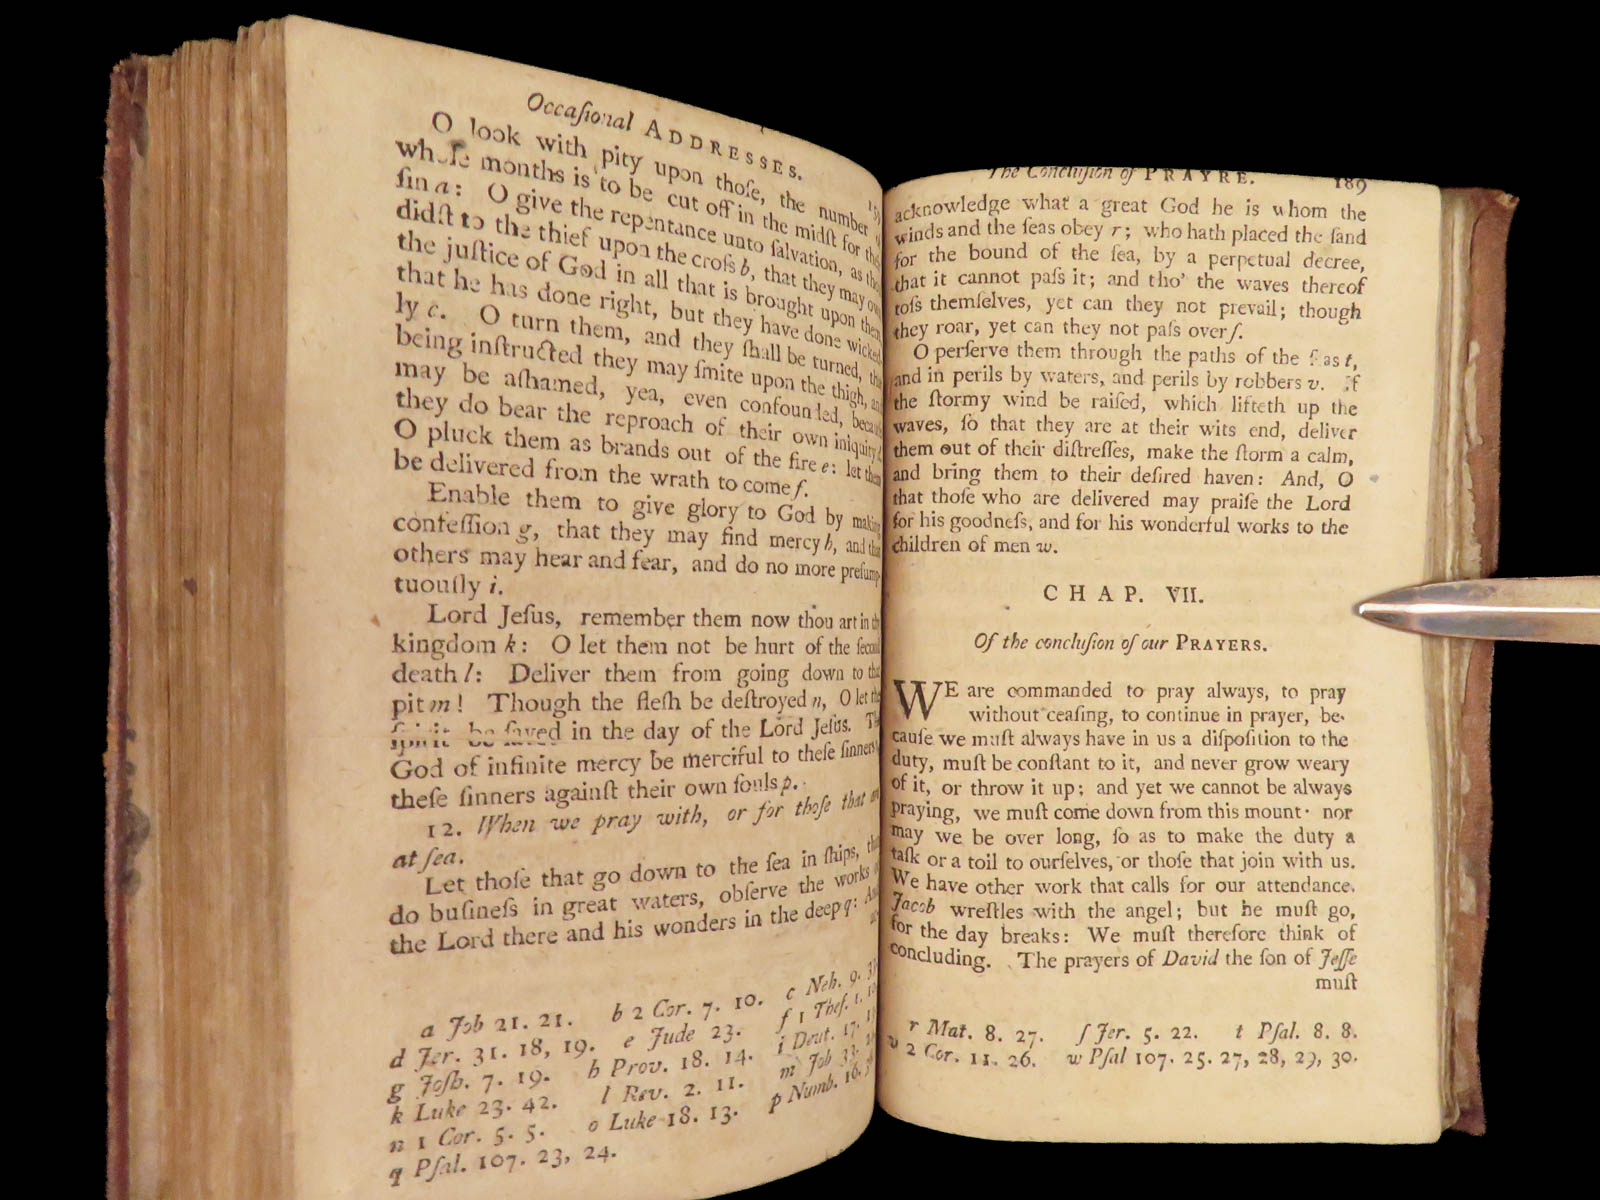 Occaſional ADDRESSES.
O look with pity upon thoſe, the number
whoſe months is to be cut off in the midſt for
ſin a: O give the repentance unto ſalvation, as
didſt to the thief upon the croſs b, that they may own
the juſtice of God in all that is brought upon them
that he has done right, but they have done wicked-
ly c. O turn them, and they ſhall be turned,
being inſtructed they may ſmite upon the thigh,
may be aſhamed, yea, even confounded,
they do bear the reproach of their own iniquity
O pluck them as brands out of the fire e: let them
be delivered from the wrath to come f.
Enable them to give glory to God by making
confeſſion g, that they may find mercy h, and that
others may hear and fear, and do no more preſump-
tuouſly i.
Lord Jeſus, remember them now thou art in
kingdom k: O let them not be hurt of the ſecond
death l: Deliver them from going down to
pit m! Though the fleſh be deſtroyed n, O let
ſpirit be ſaved in the day of the Lord Jeſus.
God of infinite mercy be merciful to theſe ſinners,
theſe ſinners againſt their own ſouls p.
12. When we pray with, or for thoſe that
at ſea.
Let thoſe that go down to the ſea in ſhips,
do buſineſs in great waters, obſerve the works
the Lord there and his wonders in the deep q:
a Job 21. 21. b 2 Cor. 7. 10. c Neh. 9.
d Jer. 31. 18, 19. e Jude 23. f 1 Theſ. 1.
g Joſh. 7. 19. h Prov. 18. 14. i Deut. 17.
k Luke 23. 42. l Rev. 2. 11. m Job 33.
n 1 Cor. 5. 5. o Luke 18. 13. p Numb. 16.
q Pſal. 107. 23, 24.
The Concluſion of PRAYRE. 189
acknowledge what a great God he is whom the
winds and the ſeas obey r; who hath placed the ſand
for the bound of the ſea, by a perpetual decree,
that it cannot paſs it; and tho' the waves thereof
toſs themſelves, yet can they not prevail; though
they roar, yet can they not paſs over ſ.
O perſerve them through the paths of the ſeas t,
and in perils by waters, and perils by robbers v. If
the ſtormy wind be raiſed, which lifteth up the
waves, ſo that they are at their wits end, deliver
them out of their diſtreſſes, make the ſtorm a calm,
and bring them to their deſired haven: And, O
that thoſe who are delivered may praiſe the Lord
for his goodneſs, and for his wonderful works to the
children of men w.
CHAP. VII.
Of the concluſion of our PRAYERS.
WE are commanded to pray always, to pray
without ceaſing, to continue in prayer, be-
cauſe we muſt always have in us a diſpoſition to the
duty, muſt be conſtant to it, and never grow weary
of it, or throw it up; and yet we cannot be always
praying, we muſt come down from this mount· nor
may we be over long, ſo as to make the duty a
taſk or a toil to ourſelves, or thoſe that join with us.
We have other work that calls for our attendance.
Jacob wreſtles with the angel; but he muſt go,
for the day breaks: We muſt therefore think of
concluding. The prayers of David the ſon of Jeſſe
muſt
r Mat. 8. 27. ſ Jer. 5. 22. t Pſal. 8. 8.
v 2 Cor. 11. 26. w Pſal 107. 25. 27, 28, 29, 30.